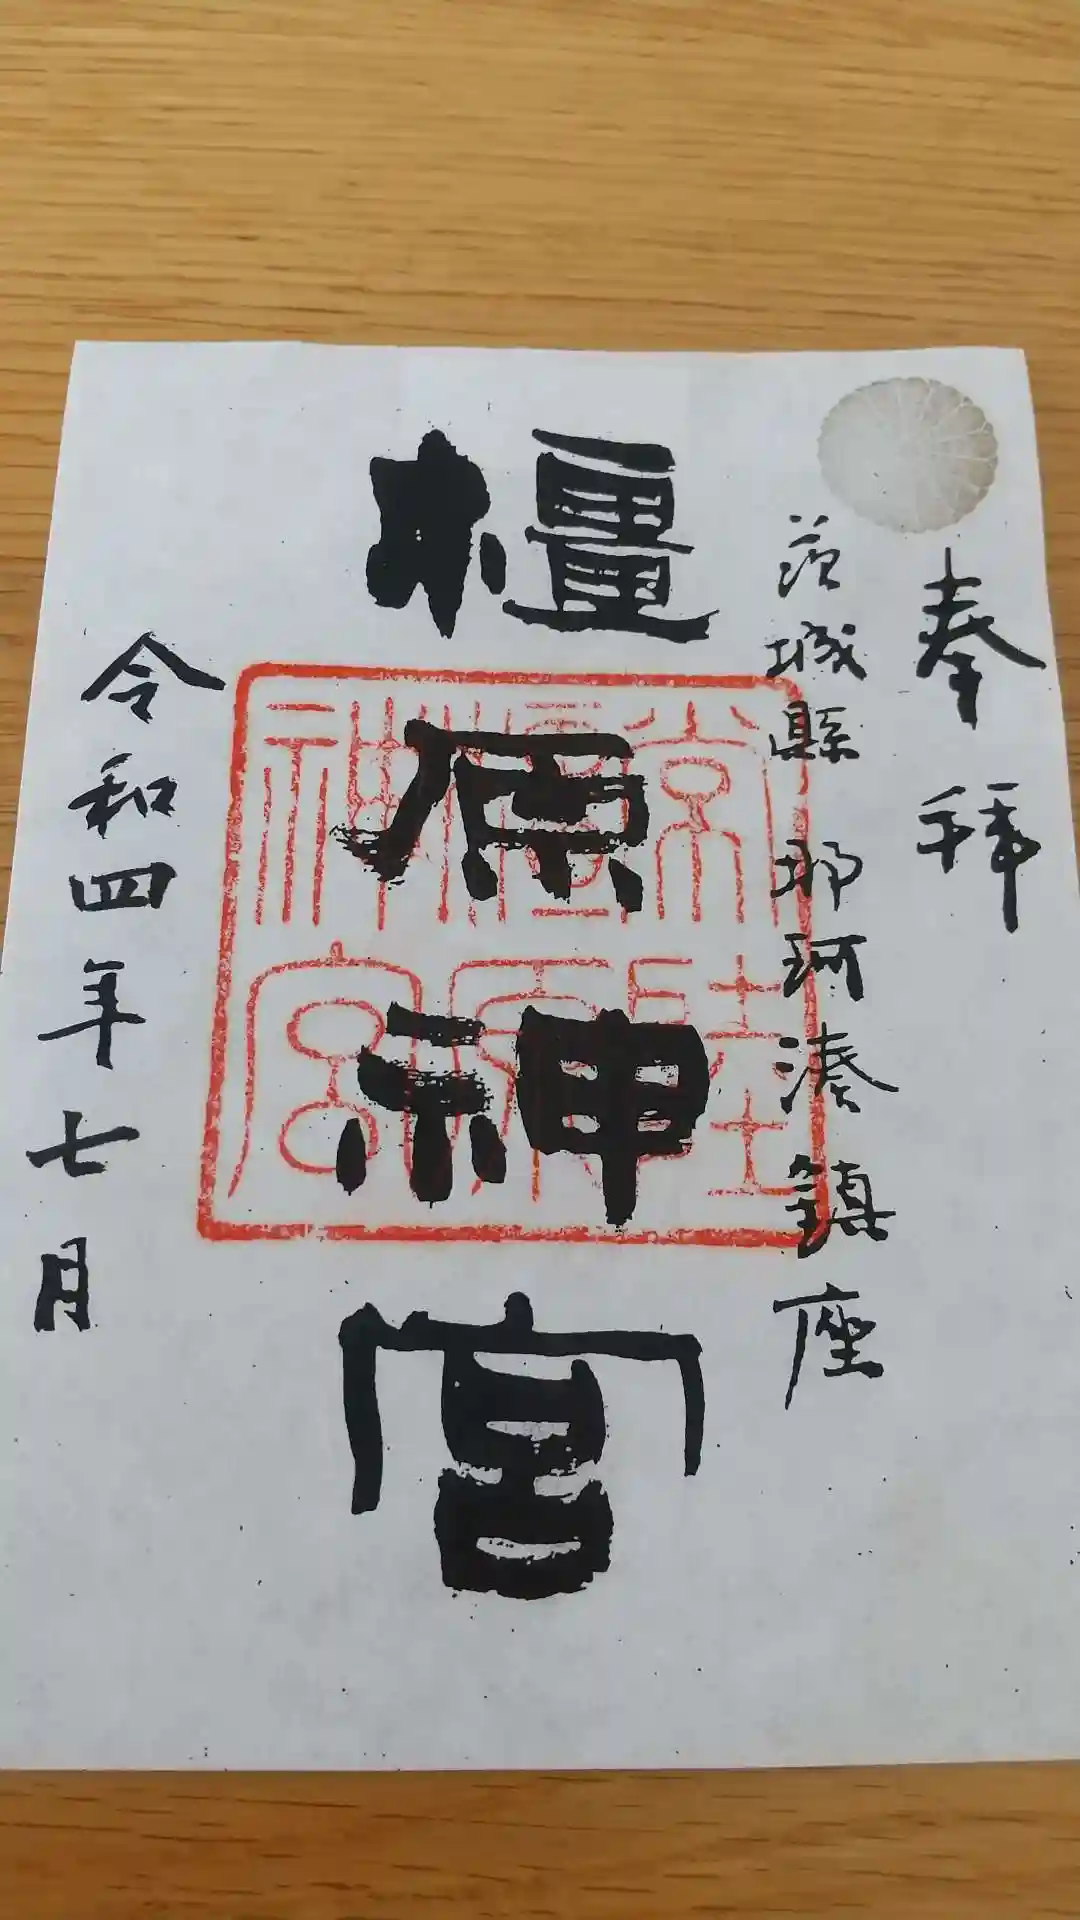 奉拜
茨城縣那珂湊鎮座
橿原神宮
常陸橿原神宮
令和四年七月